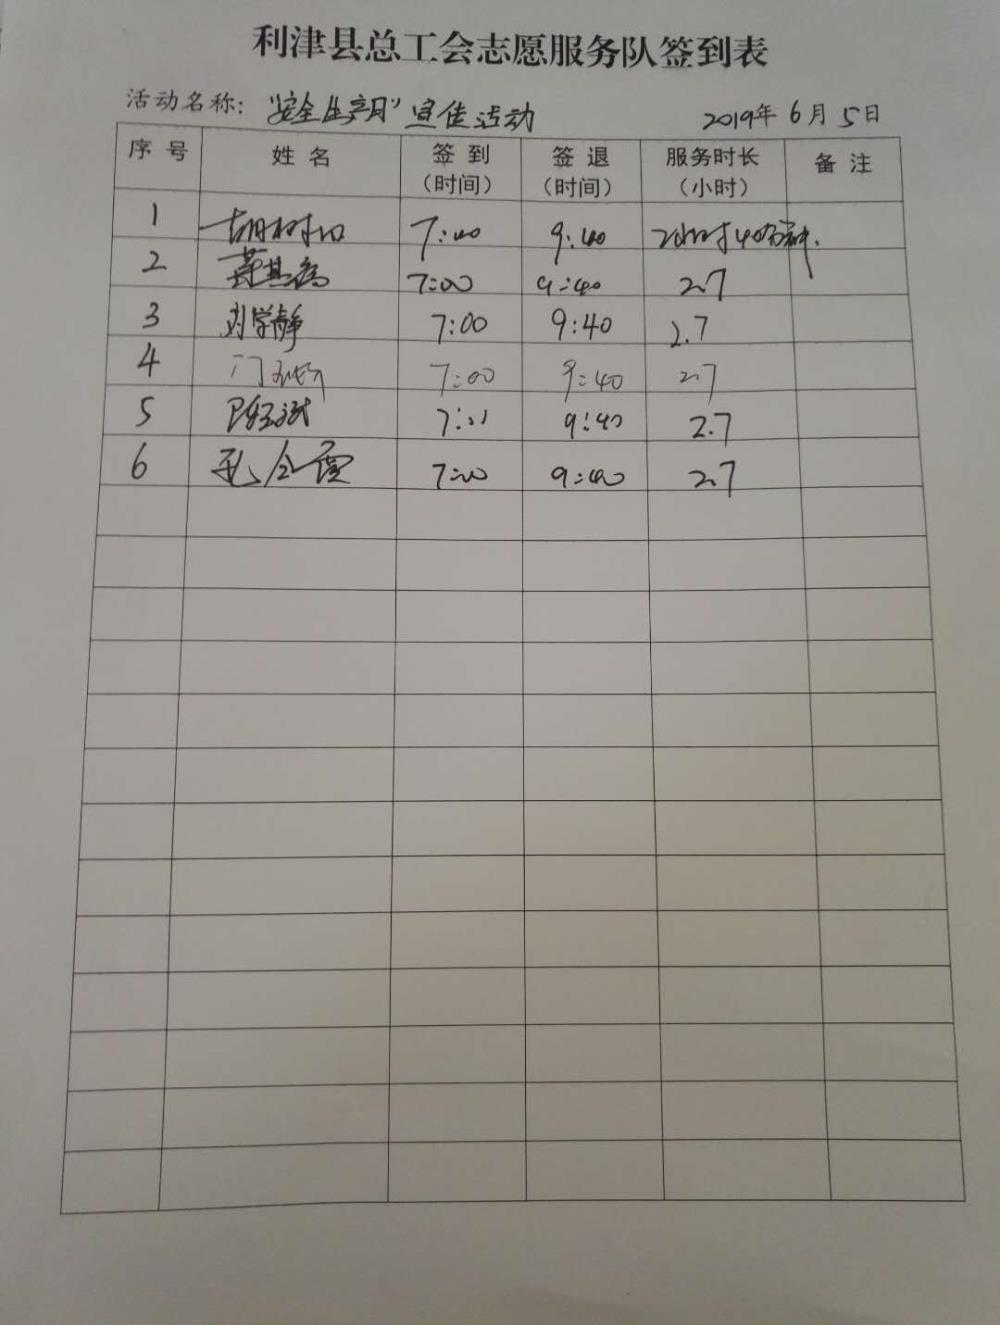 利津县总工会志愿服务队签到表
活动名称："安全生产月"宣传活动 2019年6月5日
序号 姓名 签到（时间） 签退（时间） 服务时长（小时） 备注
1 胡树 7:00 9:40 2小时40分钟.
2 7:00 9:40 2.7
3 刘学静 7:00 9:40 2.7
4 门 7:00 9:40 2.7
5 7:00 9:40 2.7
6 孔令霞 7:00 9:40 2.7